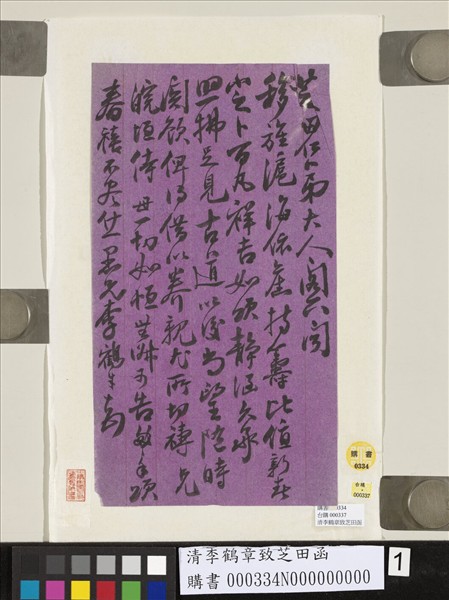 芝田仁弟大人閣下聞
移旌滬海依舊持籌比值新春
定卜百凡祥吉如頌靜涵久承
照拂足見古道以後尚望隨時
俾得借以養親尤所切禱兄
皖垣侍母一切如恒堪以告敏手頌
春禧不盡 李鶴章
購書
0334
台購
000337
購書 334
台購 000337
清李鶴章致芝田函
清李鶴章致芝田函
購書 000334N000000000
1